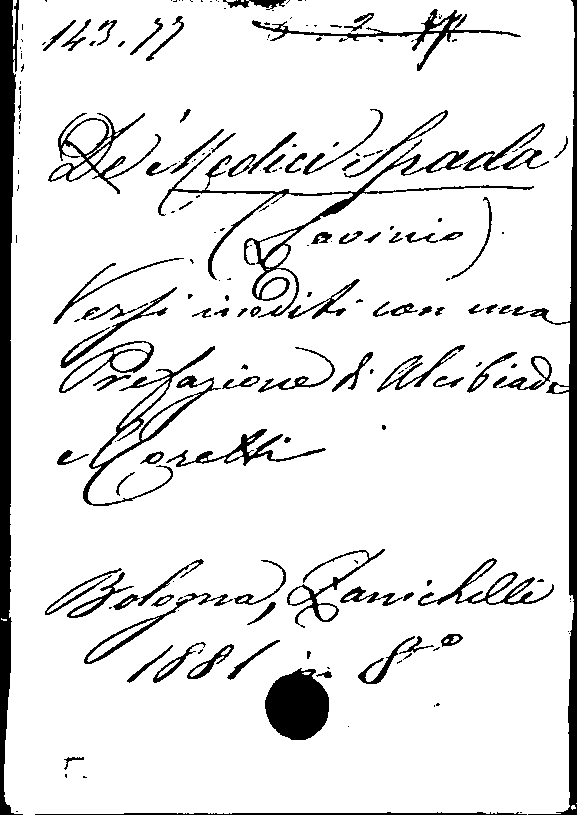 143.77
De' Medici Spada
(Lavinio)
Versi inediti con una
Prefazione di Alcibiade
Moretti
Bologna, Zanichelli
1881 in 8º